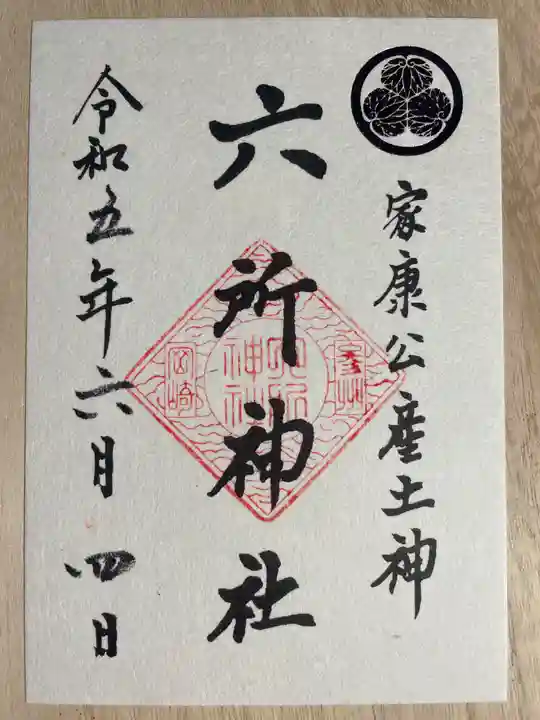 家康公産土神
六所神社
令和五年六月四日
六所
神社
岡崎